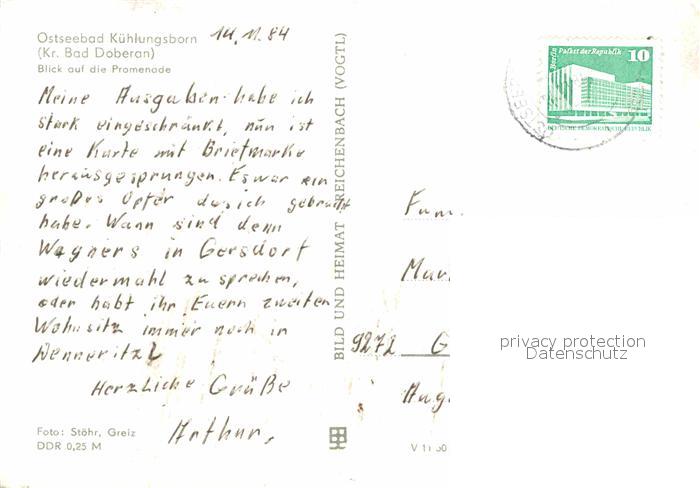 Ostseebad Kühlungsborn
(Kr. Bad Doberan)
Blick auf die Promenade
14.11.84
Meine Ausgaben habe ich
stark eingeschränkt, nun ist
eine Karte mit Briefmarke
herausgesprungen. Es war ein
großes Opfer das ich gebracht
habe. Wann sind denn
Wagners in Gersdorf
wiedermahl zu sprechen,
oder habt ihr Euern zweiten
Wohnsitz immer noch in
Denneritz?
Herzliche Grüße
Arthur.
Foto: Stöhr, Greiz
DDR 0,25 M
BILD UND HEIMAT REICHENBACH (VOGTL)
Berlin Palast der Republik
10
DEUTSCHE DEMOKRATISCHE REPUBLIK
OSTSEE
Fam.
9272 G
privacy protection
Datenschutz
V 11 50